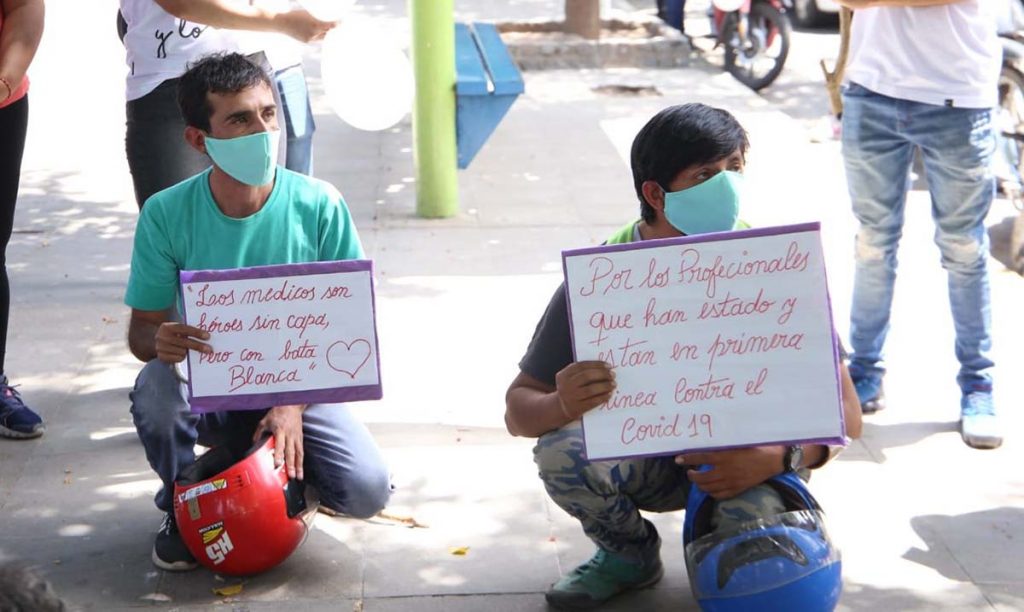 y lo
"Los medicos son
héroes sin capa,
Pero con bata
Blanca"
Por los Profecionales
que han estado y
estan en primera
linea Contra el
Covid 19
HALCON
H5